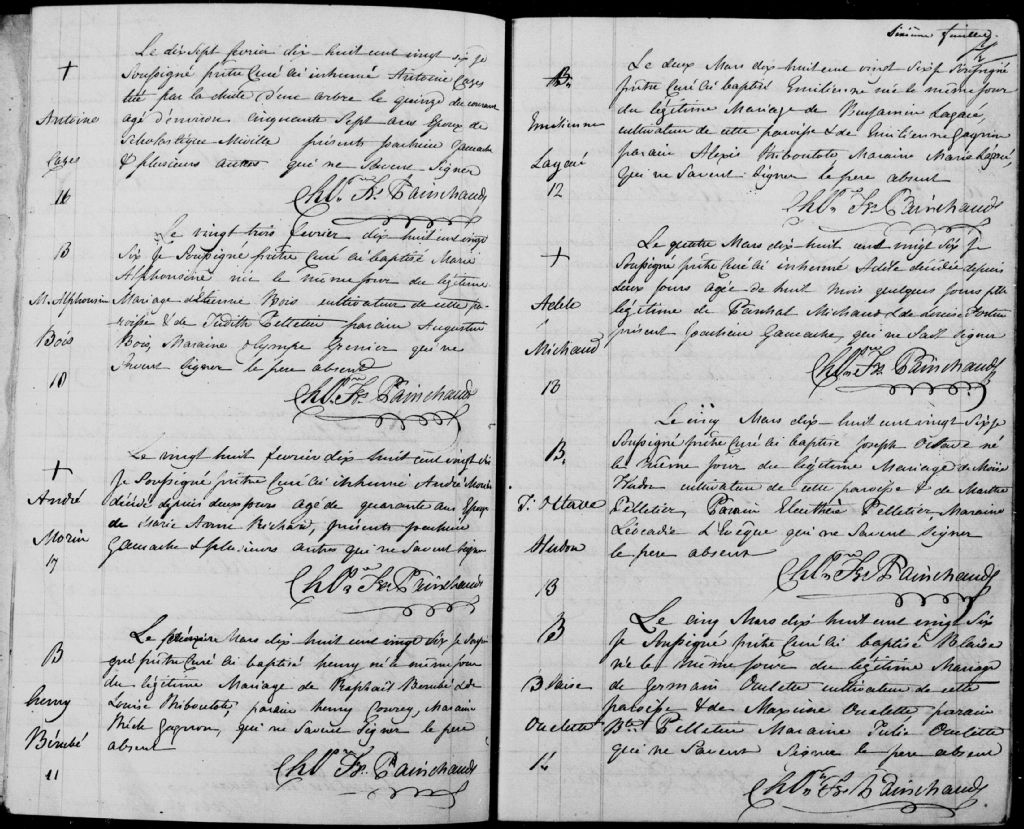 +
Antoine
Cazes
16
Le dix Sept février dix-huit cent vingt six Je
Soussigné prêtre Curé ai inhumé Antoine Cazes
tué par la chute d'une arbre le quinze du courant
agé d'environ cinquante Sept ans Epoux de
Scholastique Miville présents Joachim Gamache
& plusieurs autres qui ne Savent Signer
Chls Frs Painchaud
B
M. Alphonsine
Bois
10
Le vingt trois février dix huit cent vingt
Six Je Soussigné prêtre Curé ai baptisé Marie
Alphonsine née le même jour du légitime
Mariage d'Etienne Bois cultivateur de cette pa-
roisse & de Judith Pelletier parain Augustin
Bois, Maraine Olympe Grenier qui ne
Savent Signer le pere absent
Chls Frs Painchaud
+
André
Morin
17
Le vingt huit février dix huit cent vingt six
Je Soussigné prêtre Curé ai inhumé André Morin
décédé depuis deux jours agé de quarante ans Epoux
de Marie Anne Richard, présents Joachim
Gamache & plusieurs autres qui ne Savent Signer
Chls Frs Painchaud
B
henry
Bérubé
11
Le premier Mars dix huit cent vingt six Je Soussi
gné prêtre Curé ai baptisé henry né le même jour
du légitime Mariage de Raphaël Berubé & de
Louise Thiboutot, parain henry Maraine
Gagnon, qui ne Savent Signer le pere
absent
Chls Frs Painchaud
Sixième feuillet
B
Emilienne
Lagacé
12
Le deux Mars dix huit cent vingt Six J. Soussigné
prêtre Curé ai baptisé Emilienne née le même jour
du légitime Mariage de Benjamin Lagacé,
cultivateur de cette paroisse & de Emilienne Gagnon
parain Alexis Thiboutot, Maraine Marie Lagacé,
qui ne Savent Signer le pere absent
Chls Frs Painchaud
+
Adèle
Michaud
18
Le quatre Mars dix huit cent vingt Six Je
Soussigné prêtre Curé ai inhumé Adèle décédée depuis
deux jours agée de huit mois quelques jours fille
légitime de Paschal Michaud & de Louise Fortin
présent Joachim Gamache, qui ne Sait Signer
Chls Frs Painchaud
B.
J. Octave
Hudon
13
Le cinq Mars dix huit cent vingt Six Je
Soussigné prêtre Curé ai baptisé Joseph Octave né
le même jour du légitime Mariage de Moïse
Hudon cultivateur de cette paroisse & de Marthe
Pelletier, Parain Eleuthère Pelletier Maraine
Léocadie L'Evêque qui ne Savent Signer
le pere absent
Chls Frs Painchaud
B
Blaise
Ouelette
14
Le cinq Mars dix huit cent vingt Six
Je Soussigné prêtre Curé ai baptisé Blaise
né le même jour du légitime Mariage
de Germain Ouelette cultivateur de cette
paroisse & de Maxime Ouelette parain
Bte Pelletier Maraine Julie Ouelette
qui ne Savent Signer le pere absent
Chls Frs Painchaud